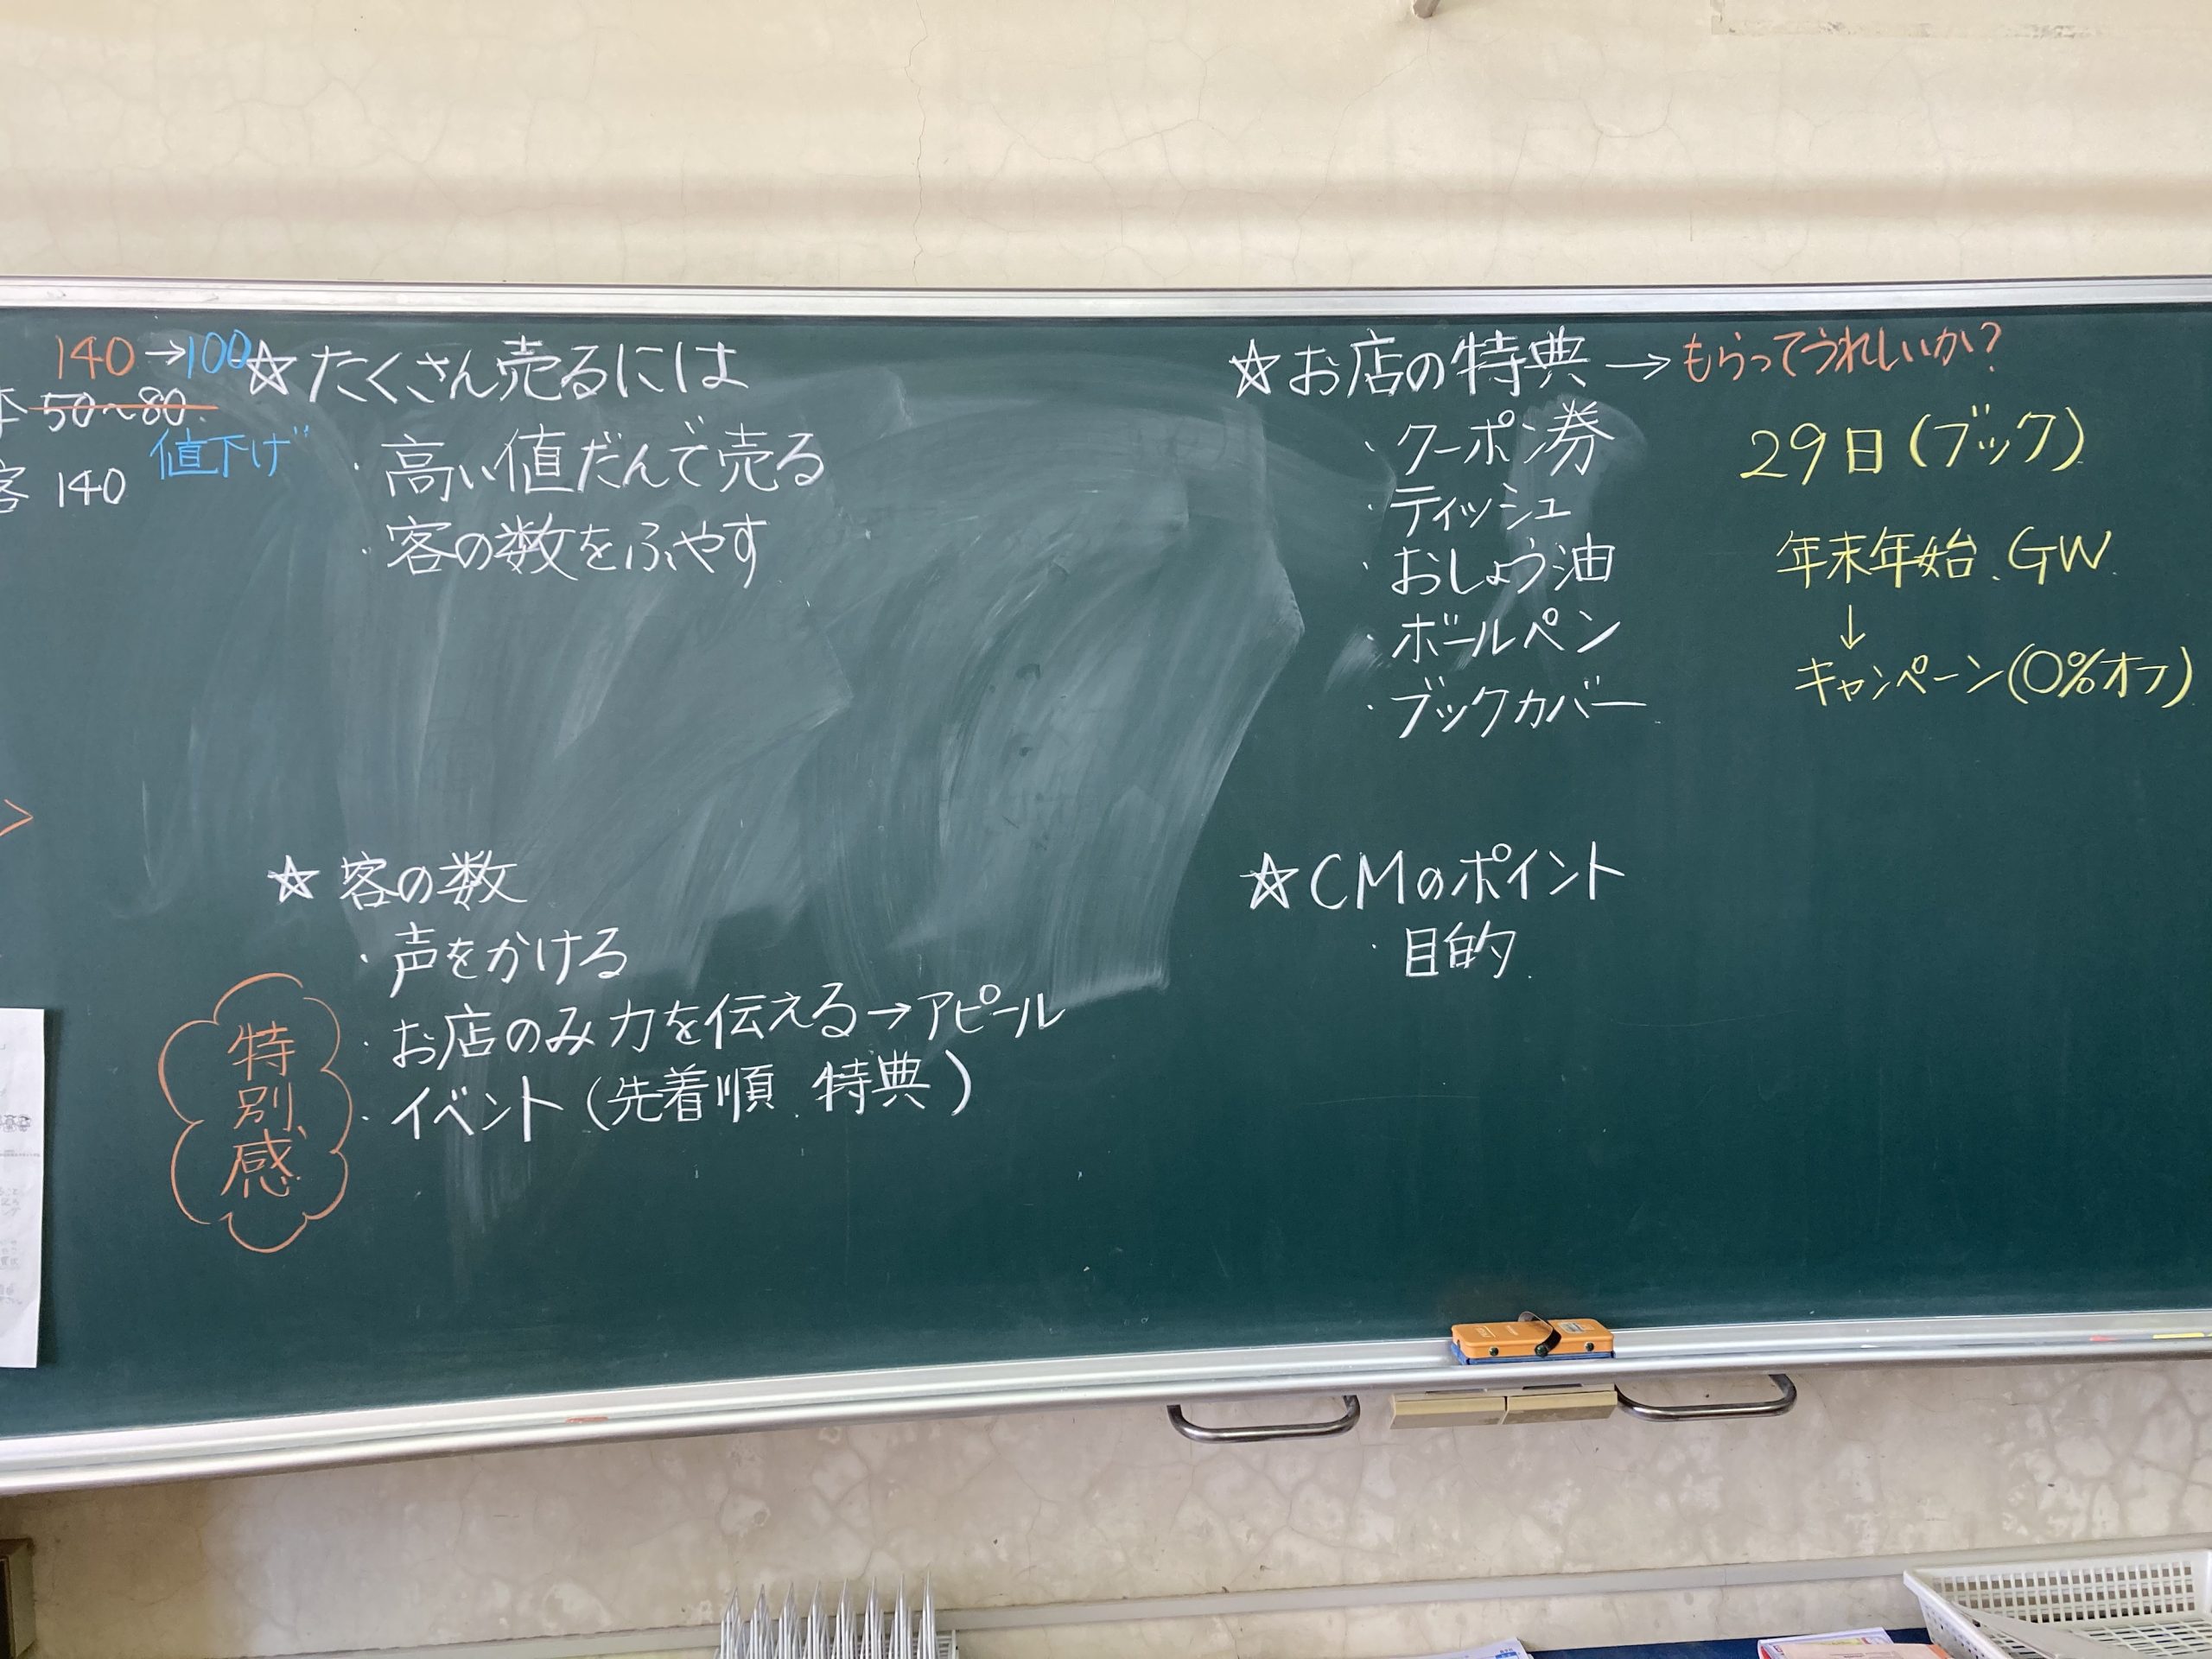 140→100
本 50~80
値下げ
客 140
☆たくさん売るには
・高い値だんで売る
・客の数をふやす
☆客の数
・声をかける
・お店のみ力を伝える→アピール
・イベント(先着順、特典)
特別感
☆お店の特典→もらってうれしいか?
・クーポン券
・ティッシュ
・おしょう油
・ボールペン
・ブックカバー
29日(ブック)
年末年始、GW
↓
キャンペーン(0%オフ)
☆CMのポイント
・目的